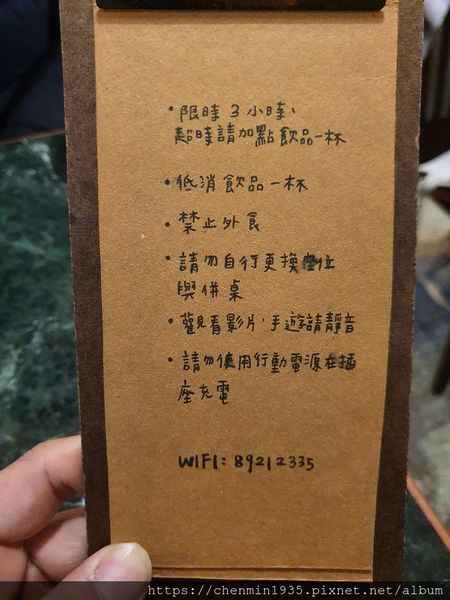 • 限時 3 小時、
超時請加點飲品一杯
• 低消飲品一杯
• 禁止外食
• 請勿自行更換座位
與併桌
• 觀看影片、手遊請靜音
• 請勿使用行動電源在插
座充電
WIFI: 89212335
https://chenmin1935.pixnet.net/album